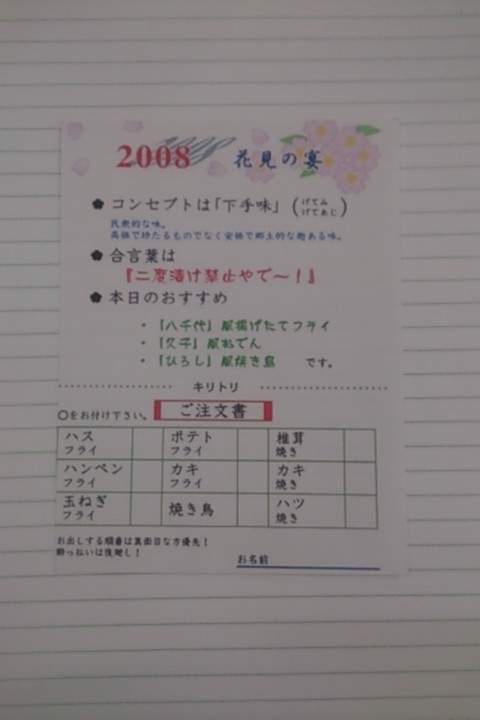 2008 花見の宴
● コンセプトは「下手味」(げてみ げてあじ)
民衆的な味。
高価で妙たるものでなく安価で郷土的な趣ある味。
● 合言葉は
『二度漬け禁止やで～!』
● 本日のおすすめ
・「八千代」風揚げたてフライ
・「久子」風おでん
・「ひろし」風焼き鳥 です。
キリトリ
○をお付け下さい。 ご注文書
ハスフライ ポテトフライ 椎茸焼き
ハンペンフライ カキフライ カキ焼き
玉ねぎフライ 焼き鳥 ハツ焼き
お出しする順番は真面目な方優先!
酔っ払いは後廻し!
お名前